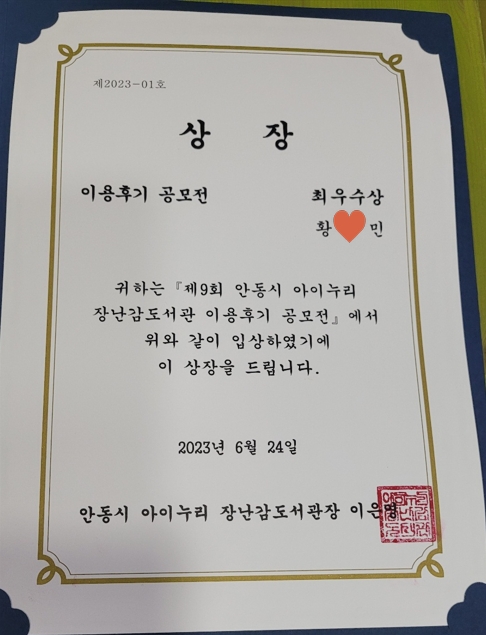 제2023-01호
상 장
이용후기 공모전 최우수상
황 민
귀하는 『제9회 안동시 아이누리
장난감도서관 이용후기 공모전』에서
위와 같이 입상하였기에
이 상장을 드립니다.
2023년 6월 24일
안동시 아이누리 장난감도서관장 이은영